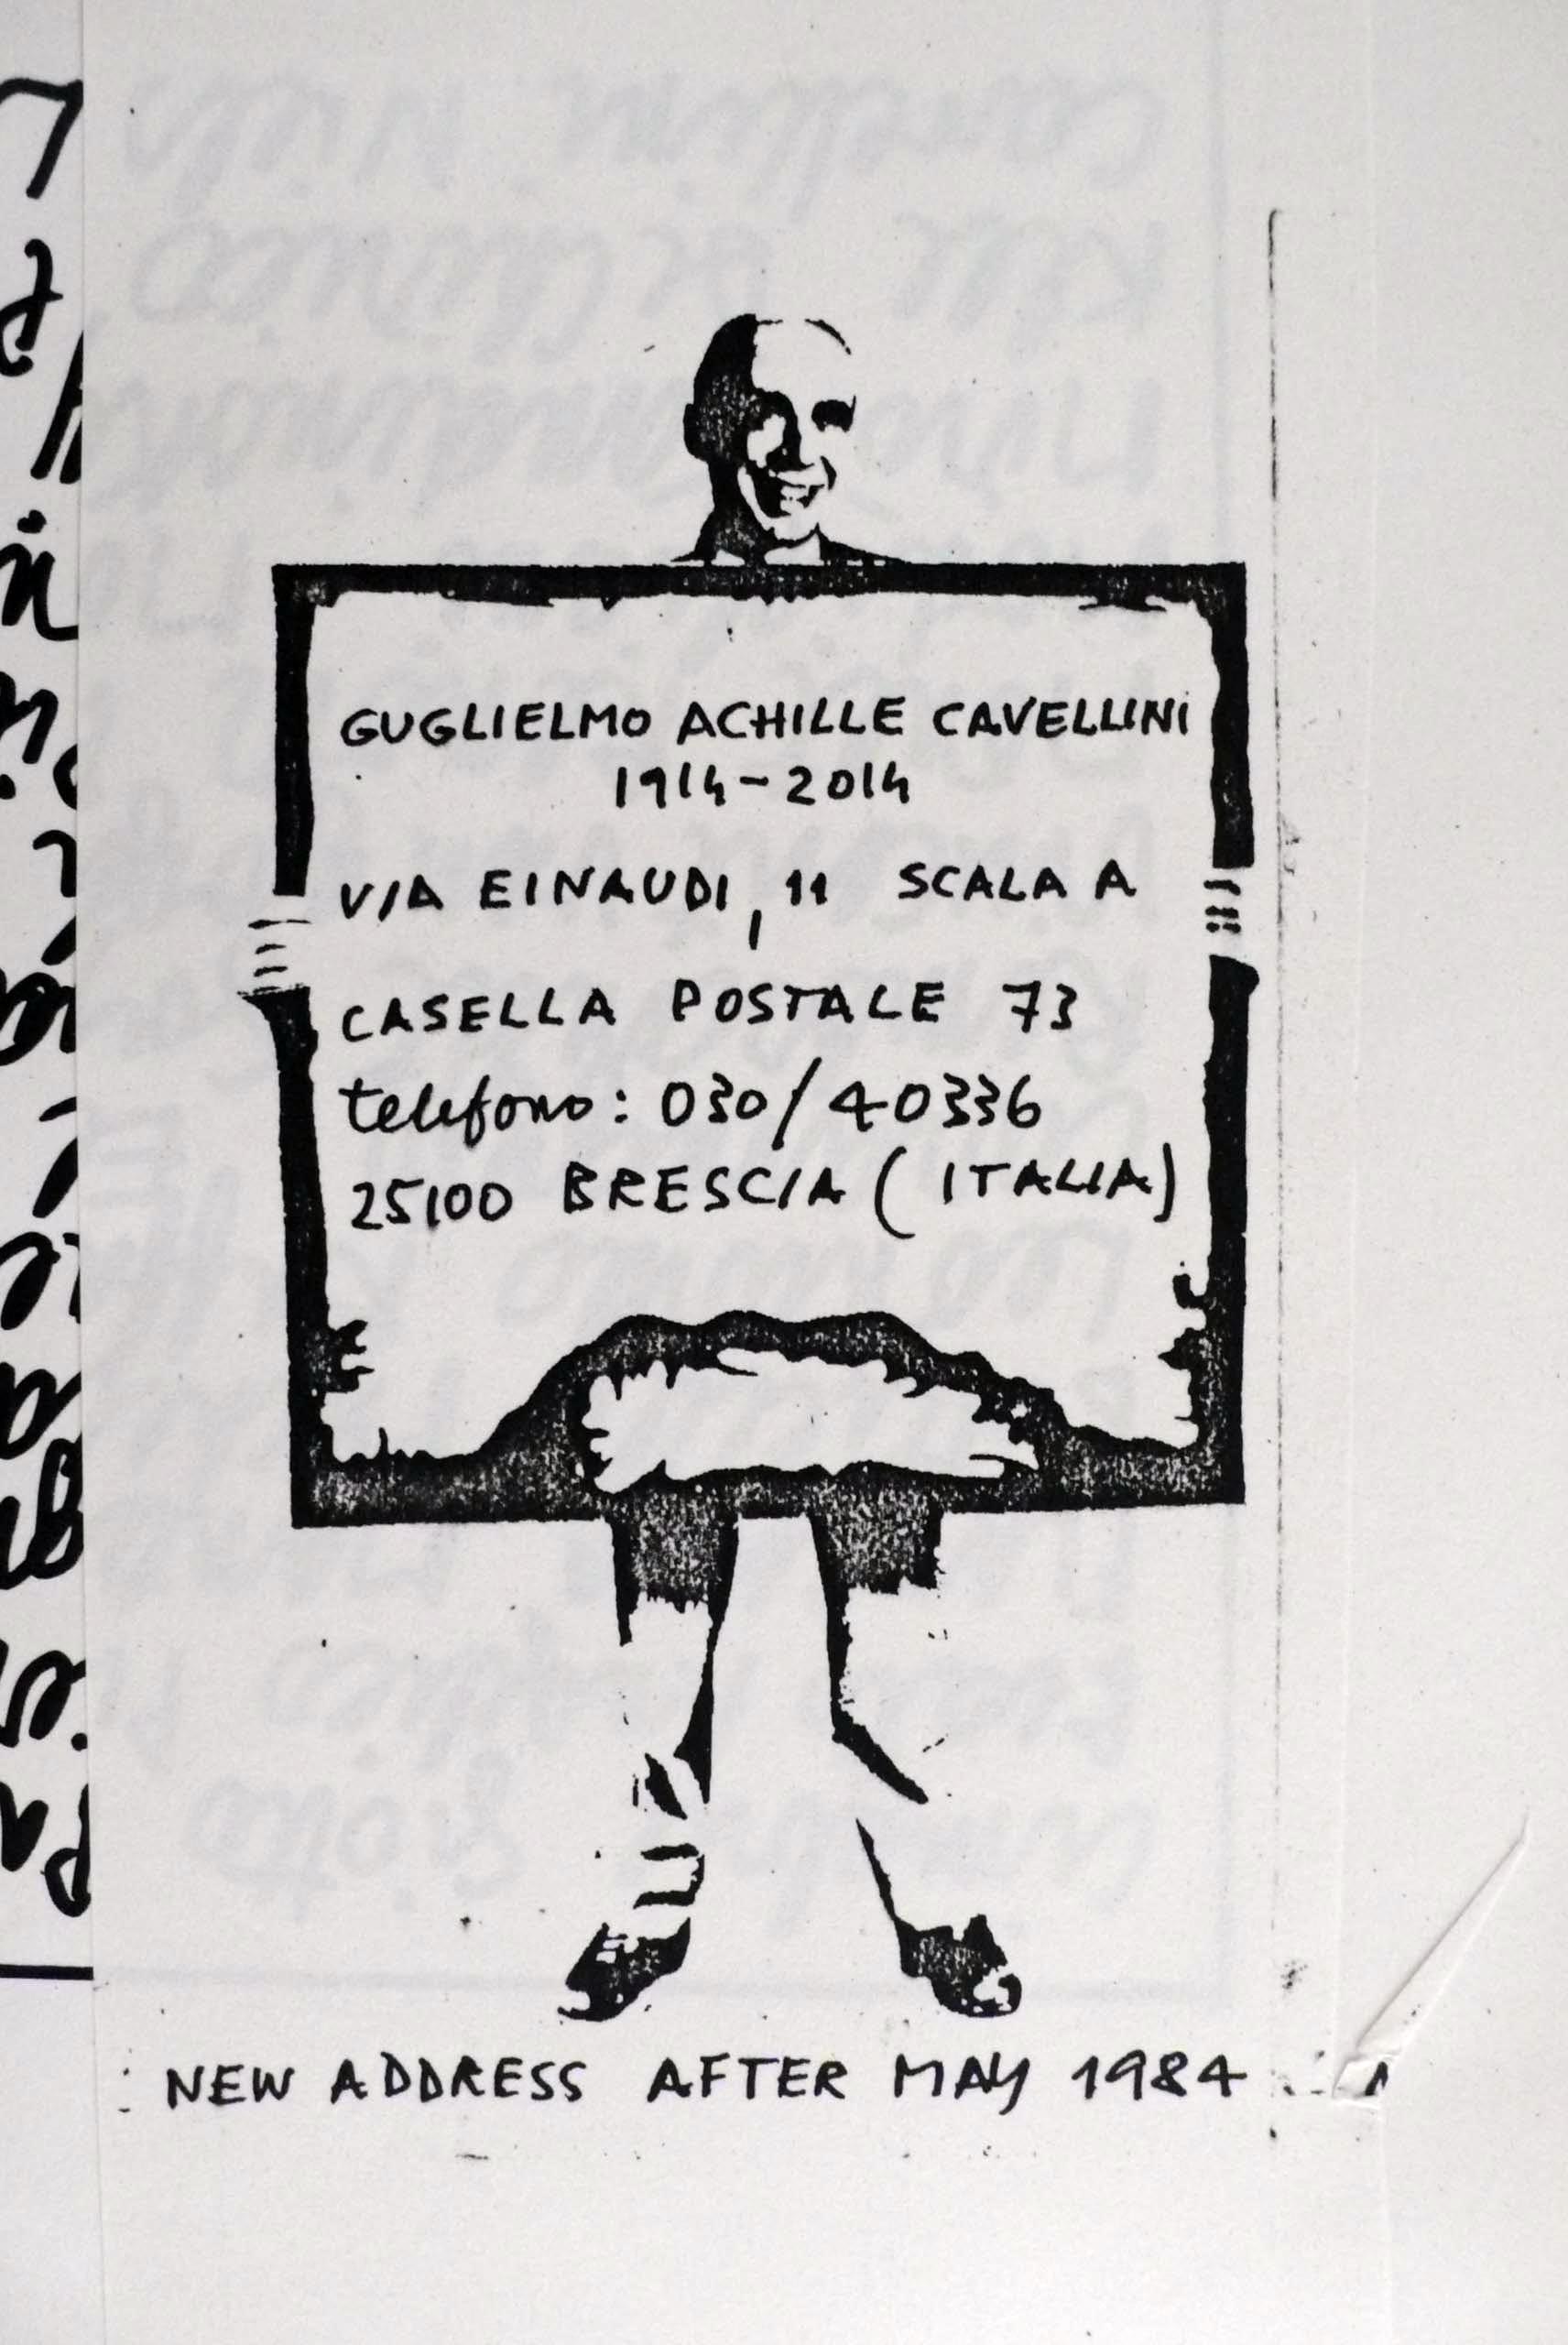 GUGLIELMO ACHILLE CAVELLINI
1914-2014
VIA EINAUDI, 11 SCALA A
CASELLA POSTALE 73
telefono: 030/40336
25100 BRESCIA (ITALIA)
NEW ADDRESS AFTER MAY 1984